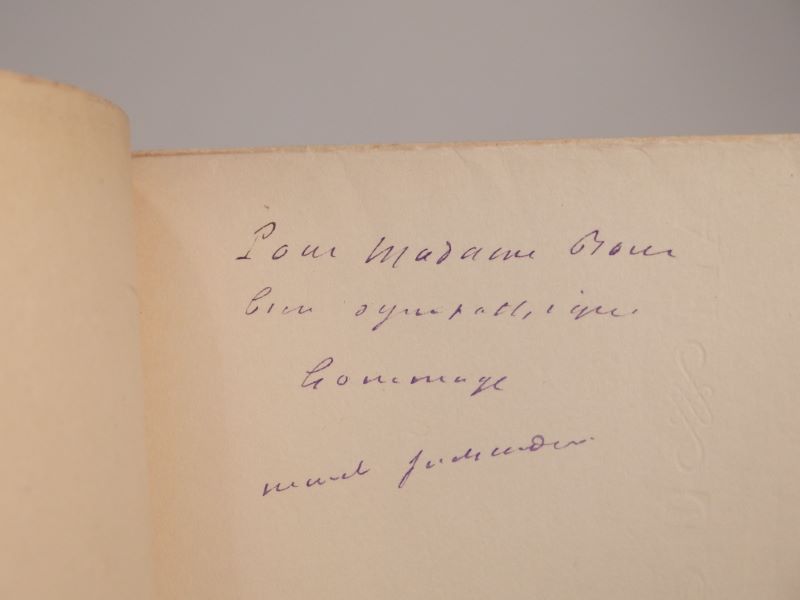 Pour Madame
bien sympathique
hommage
Marcel Jouhandeau